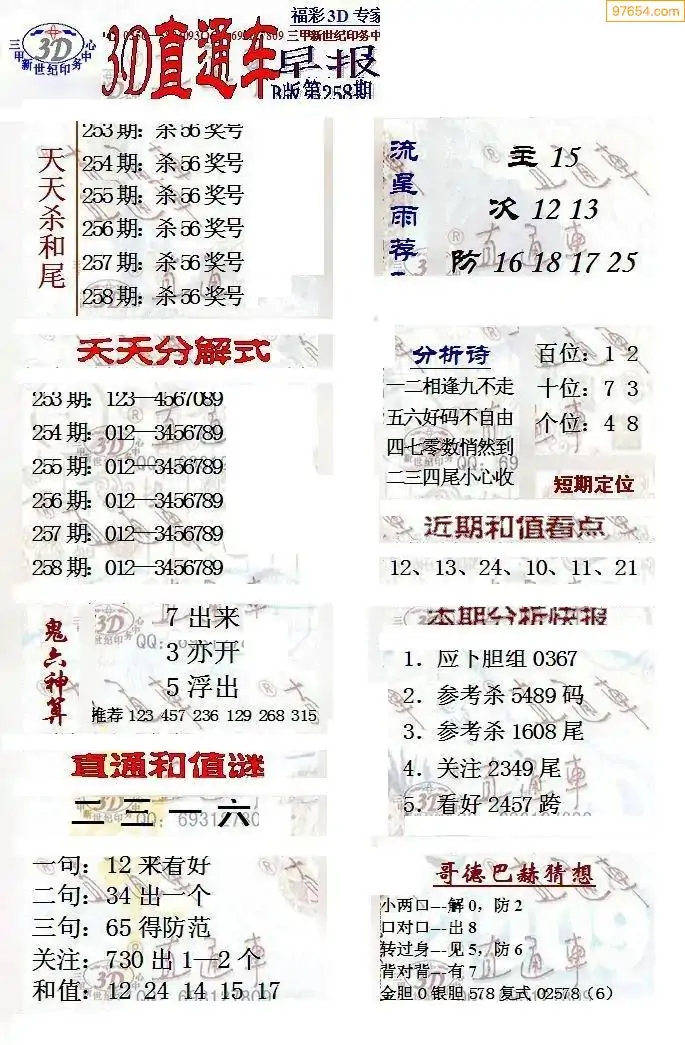 97654.com
福彩3D 专家
三甲新世纪印务中心
3D
3D直通车
三甲新世纪印务中
早报
B版第258期
天天杀和尾
253期：杀56奖号
254期：杀56奖号
255期：杀56奖号
256期：杀56奖号
257期：杀56奖号
258期：杀56奖号
流星雨荐
主 15
次 12 13
防 16 18 17 25
天天分解式
253期：123—4567089
254期：012—3456789
255期：012—3456789
256期：012—3456789
257期：012—3456789
258期：012—3456789
分析诗
一二相逢九不走
五六好码不自由
四七零数悄然到
二三四尾小心收
百位：1 2
十位：7 3
个位：4 8
短期定位
近期和值看点
12、13、24、10、11、21
鬼六神算
7出来
3亦开
5浮出
推荐 123 457 236 129 268 315
本期分析快报
1．应下胆组0367
2．参考杀5489码
3．参考杀1608尾
4．关注2349尾
5．看好2457跨
直通和值谜
二三一六
一句：12来看好
二句：34出一个
三句：65得防范
关注：730出1—2个
和值：12 24 14 15 17
哥德巴赫猜想
小两口---解0，防2
口对口---出8
转过身---见5，防6
背对背---有7
金胆0银胆578复式02578（6）